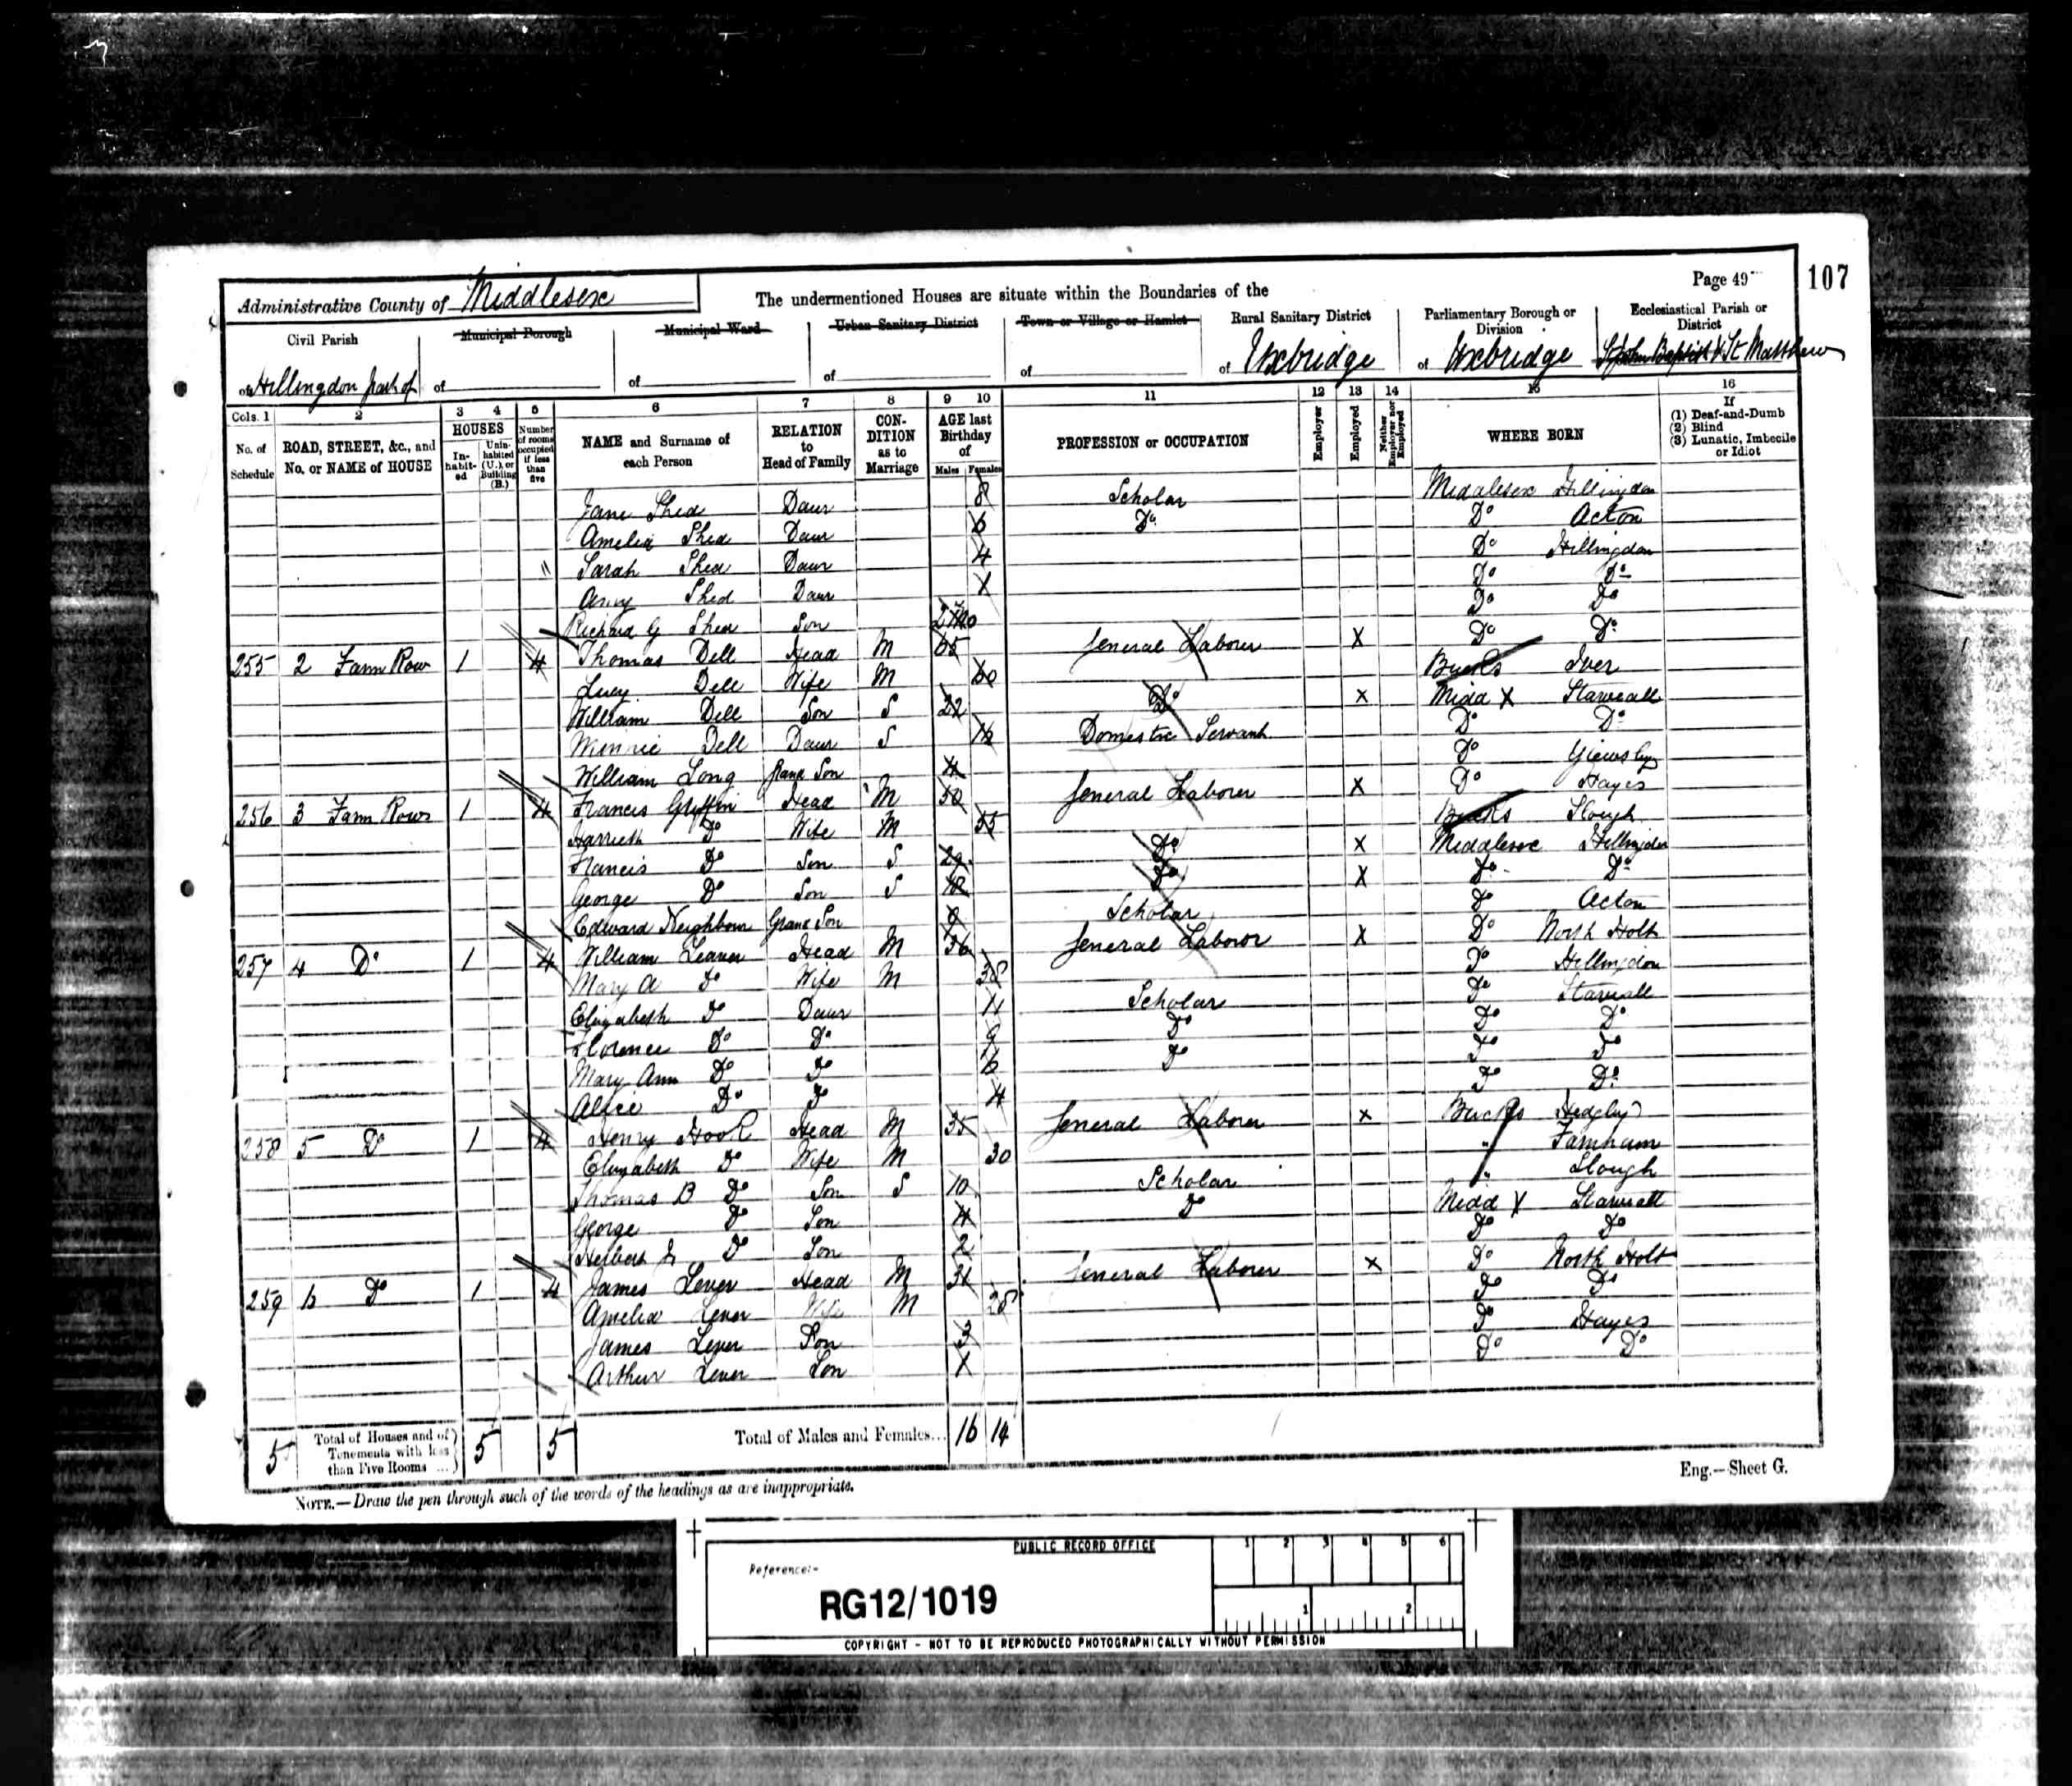 Page 49
107
Administrative County of Middlesex
The undermentioned Houses are situate within the Boundaries of the
Civil Parish
Municipal Borough
Municipal Ward
Urban Sanitary District
Town or Village or Hamlet
Rural Sanitary District
Parliamentary Borough or Division
Ecclesiastical Parish or District
of Hillingdon part of
of
of
of
of
of Uxbridge
of Uxbridge
St John Baptist & St Matthew
Cols. 1 2 3 4 5 6 7 8 9 10 11 12 13 14 15 16
No. of Schedule
ROAD, STREET, &c., and No. or NAME of HOUSE
HOUSES
In-habit-ed
Unin-habited (U.), or Building (B.)
Number of rooms occupied if less than five
NAME and Surname of each Person
RELATION to Head of Family
CON-DITION as to Marriage
AGE last Birthday of
Males Females
PROFESSION or OCCUPATION
Employer
Employed
Neither Employer nor Employed
WHERE BORN
If
(1) Deaf-and-Dumb
(2) Blind
(3) Lunatic, Imbecile or Idiot
Jane Shed Daur 8 Scholar Middlesex Hillingdon
Amelia Shed Daur 6 Do Do Acton
Sarah Shed Daur 4 Do Hillingdon
Amy Shed Daur Do Do
Richard G Shed Son Do Do
255 2 Farm Row 1 4 Thomas Dell Head M 65 General Laborer X Do Do
Lucy Dell Wife M 60 Bucks Iver
William Dell Son S 22 Do X Midd X Starveall
Winnie Dell Daur S 16 Domestic Servant Do Do
William Long Grand Son 4 Do Yiewsley
256 3 Farm Row 1 4 Francis Griffin Head M 50 General Laborer X Do Hayes
Harrieth Do Wife M 55 Bucks Slough
Francis Do Son S Do X Middlesex Hillingdon
George Do Son S 18 Do X Do Do
Edward Neighbour Grand Son Scholar Do Acton
257 4 Do 1 4 William Leaver Head M 36 General Laboror X Do North Holt
Mary A Do Wife M 38 Do Hillingdon
Elizabeth Do Daur 11 Scholar Do Starveall
Florence Do Do 9 Do Do Do
Mary Ann Do Do 6 Do Do Do
Alice Do Do 4 Do Do
258 5 Do 1 4 Henry Hook Head M 35 General Laborer X Bucks Hedgley
Elizabeth Do Wife M 30 " Farnham
Thomas B Do Son S 10 Scholar " Slough
George Do Son 4 Do Midd X Starveall
Herbert Do Son 2 Do Do
259 6 Do 1 4 James Lever Head M 31 General Laborer X Do North Holt
Amelia Lever Wife M 28 Do Do
James Lever Son 3 Do Hayes
Arthur Lever Son Do Do
5 Total of Houses and of Tenements with less than Five Rooms ... 5 5 Total of Males and Females... 16 14
Eng.—Sheet G.
NOTE.—Draw the pen through such of the words of the headings as are inappropriate.
PUBLIC RECORD OFFICE
1 2 3 4 5 6
Reference:-
RG12/1019
1 2
COPYRIGHT - NOT TO BE REPRODUCED PHOTOGRAPHICALLY WITHOUT PERMISSION